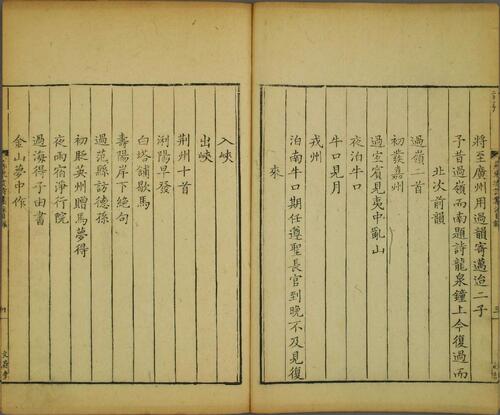 將至廣州用過韻寄邁迨二子
予昔過嶺而南題詩龍泉鐘上今復過而
北次前韻
過嶺二首
初發嘉州
過宜賓見夷中亂山
夜泊牛口
牛口見月
戎州
泊南牛口期任遵聖長官到晚不及見復
來
入峽
出峽
荆州十首
浰陽早發
白塔舖歇馬
壽陽岸下絶句
過范縣訪德孫
初貶英州贈馬夢得
夜雨宿淨行院
過海得子由書
金山夢中作